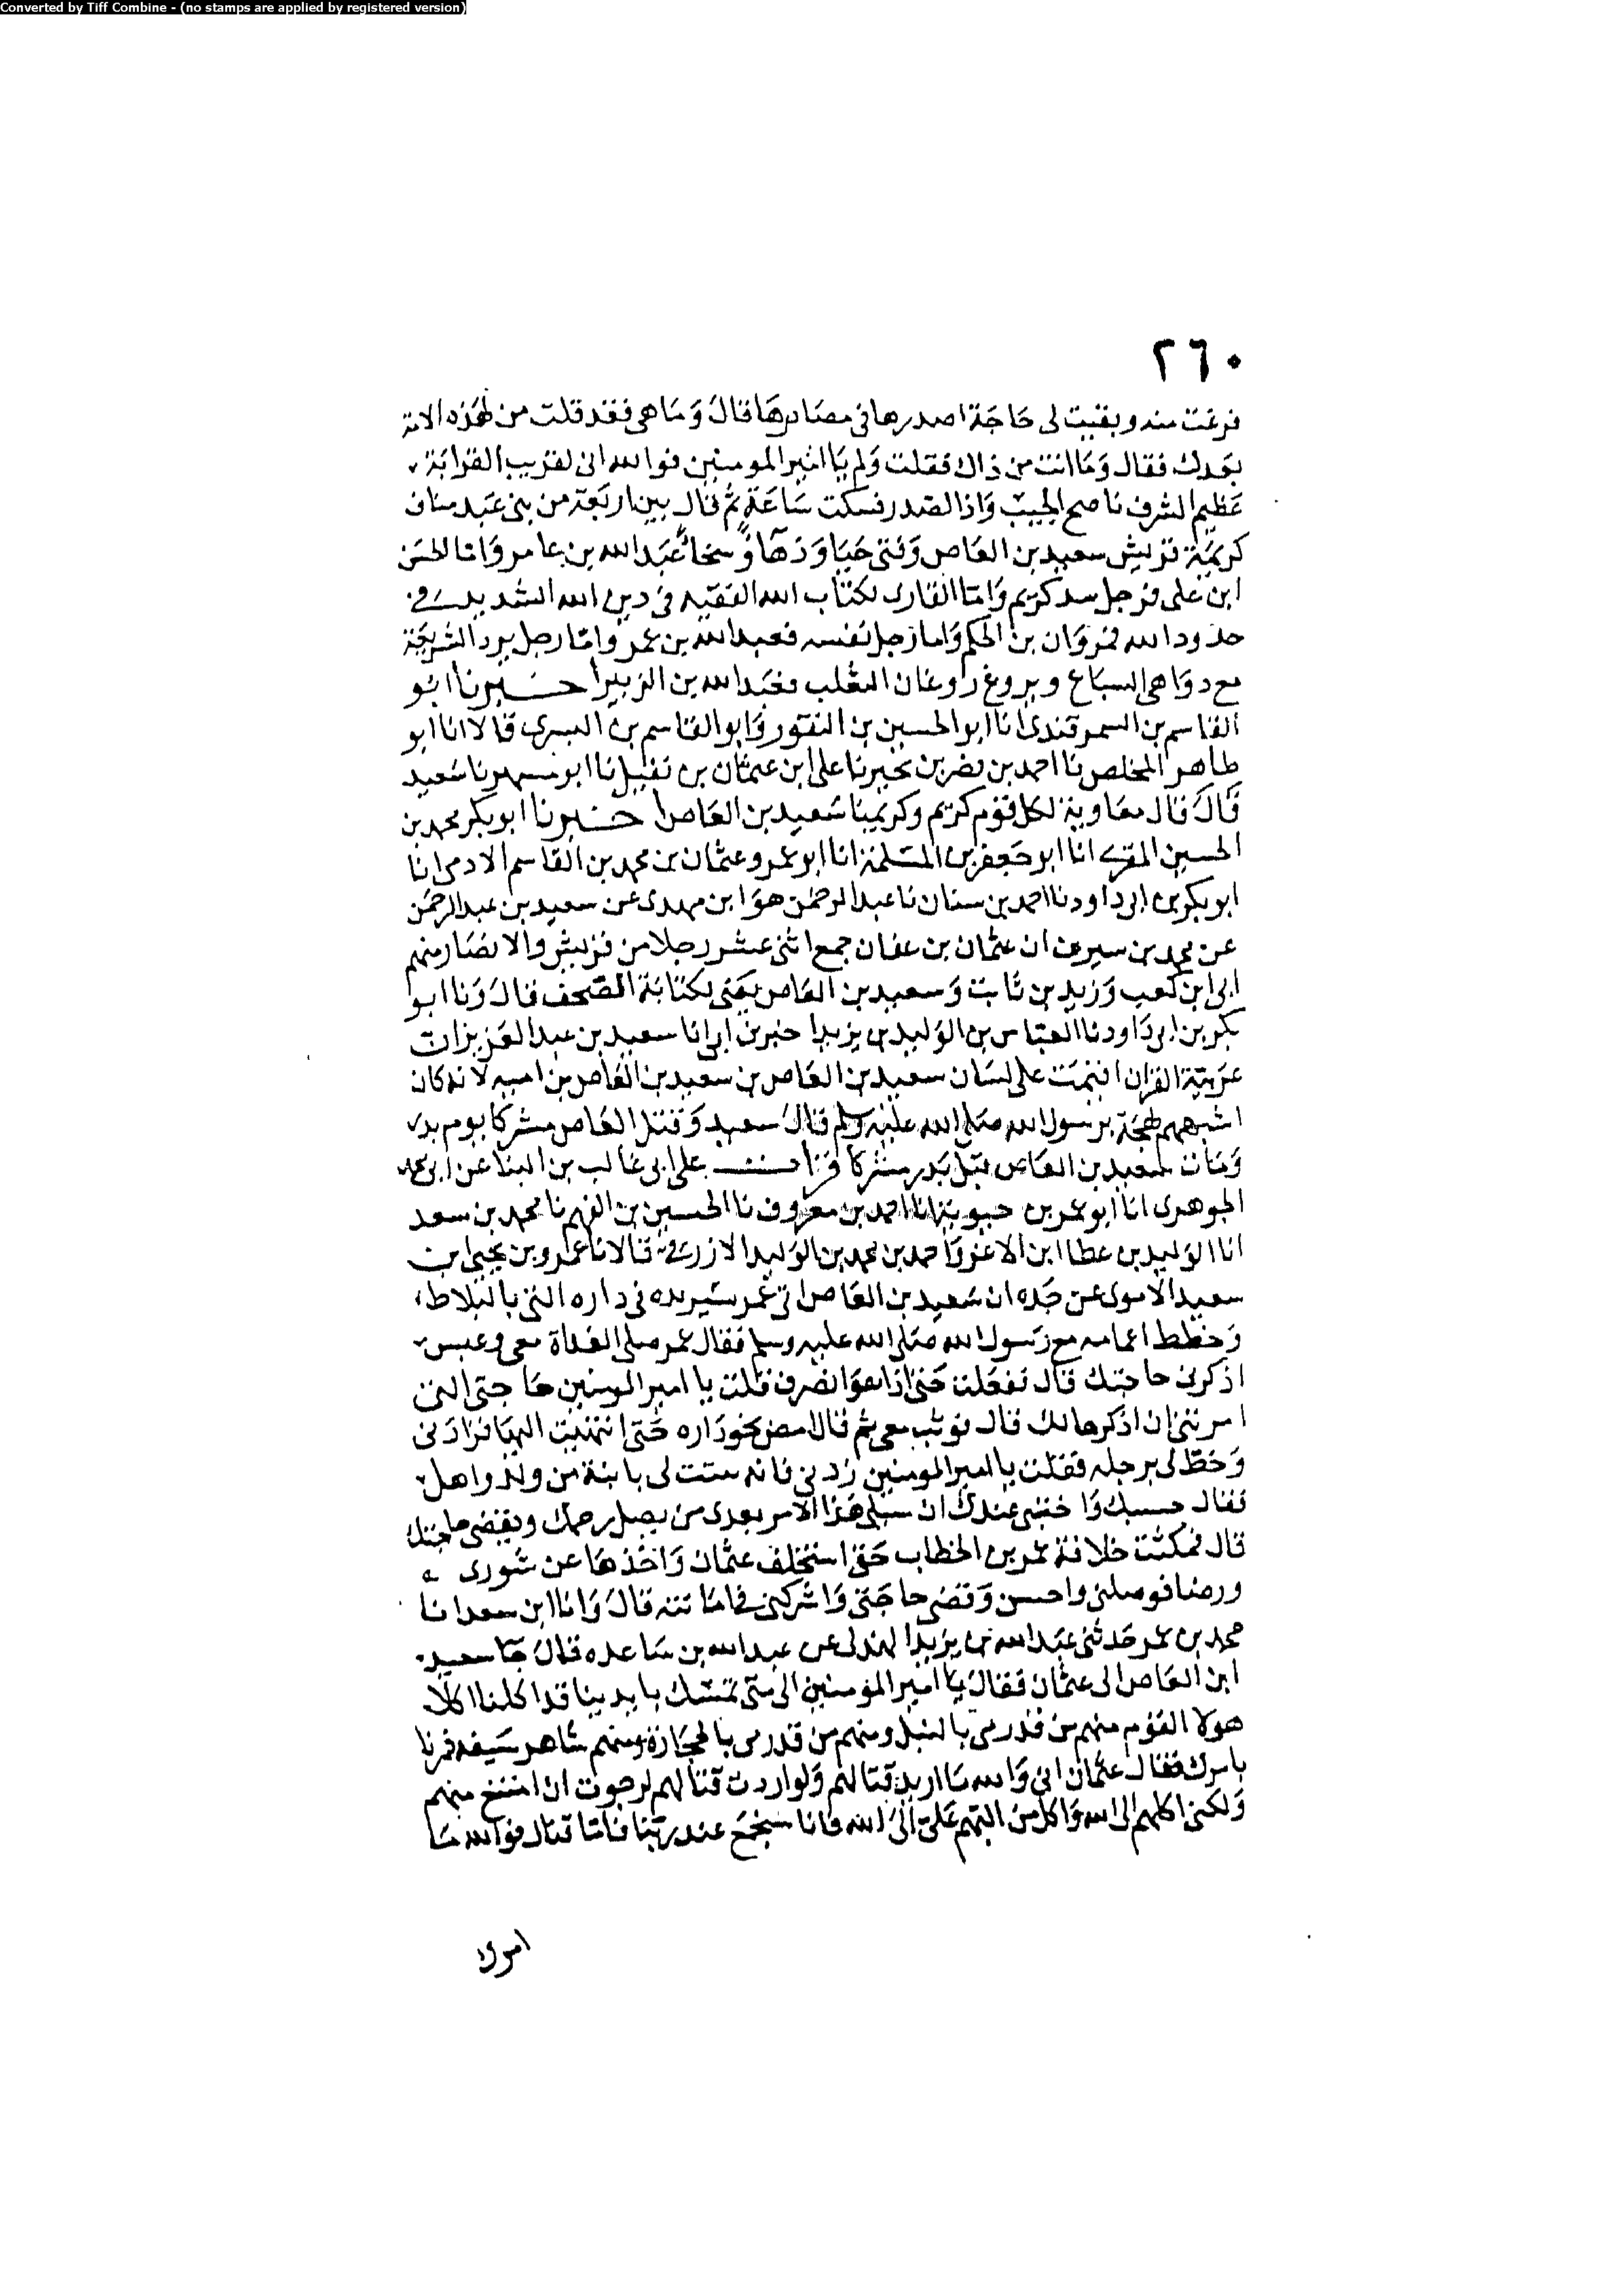 Converted by Tiff Combine - (no stamps are applied by registered version)
٢٦٠
فرغت منه وبقيت لى حَاجَة اصدرها فى مصَادرهَا قالَ وَمَا هى فقد قلت من لهَذه الامة
بعَدك فقال وَمَا انت من ذاك فقلت وَلم يَا امير المومنين فوالله انى لقريب القرابَة
عَظيم الشرف ناصح الجيب وَاذ الصدر فسكت سَاعَة ثم قال بين اربَعة من بنى عَبد مناف
كريمَة قريش سعيد بن العَاص وَفتى حَيَا وَدَهَآ وَسخا عَبَد الله بن عامر وَامّا الحسَن
ابن على فرجل سيد كريم وَامّا القارى لكتاب الله الفقيه فى دين الله الشديد فى
حدود الله فمروَان بن الحكم وَاما رَجل نفسه فعبد الله بن عمر وامّا رجل يرد الشريعَة
مع دوَاهى السبَاع ويروغ رَوغان الثعَلب فعَبَد الله بن الزبير اخــبرنا ابُو
القاسم بن السمرقندى انا ابو الحسين بن النقور وَابو القاسم بن البسرى قالا انا ابو
طاهر المخلص نا احمد بن نصر بن بحير نا على ابن عثمان بن نفيل نا ابو مسهر نا سَعيد
قَالَ قال معَاوية لكل قوم كريم وكريمنا سَعيد بن العَاص اخــبرنا ابو بكر محمد بن
الحسين المقرى انا ابو جَعفر بن المسَلمة انا ابو عمرو عثمان بن محمد بن القاسم الادمى انا
ابو بكر بن ابى داود نا احمد بن سنان نا عبد الرحمَن هوَ ابن مهدى عن سعيد بن عبد الرحمَن
عن محمد بن سيرين ان عثمان بن عفان جمع اثنى عشر رجلا من قريش والانصَار منهم
ابى ابن كعب وَزيد بن ثابت وَسعيد بن العَاص يعَنى لكتابَة المصَحف قالَ وَنا ابو
بكر بن ابى دَاود نا العبّاس بن الوَليد بن يزيد اخبرنى ابى نا سعيد بن عبد العَزيز ان
عرَبيّة القران اقيمَت على لسَان سعيد بن العَاص بن سعيد بن العَاص بن اميه لانه كان
اشبههم لهجَة برسول الله صَلى الله عليَه وسلم قالَ سعيد وَقتل العَاص مشركا يوم بدر
وَمَات سعيد بن العَاص قبَل بَدر مشركا قرات على ابى غالب بن البنا عن ابى محمد
الجوهرى انا ابو عمر بن حيويَة انا احمد بن معرُوف نا الحسين بن الفهم نا محمد بن سعد
انا الوَليد بن عطا ابن الاغر وَاحمد بن محمد بن الوَليد الازرقى قالا نا عمرو بن يحيى ابن
سعيد الامَوى عن جَده ان سَعيد بن العَاص اتى عُمر يستَزيده فى داره التى بالبَلاط
وَخطط اعمامه مع رَسول الله صَلى الله عليه وسلم فقال عمر صلى الغداة معى وغبس
اذكرنى حاجتك قاَل ففعَلت حَتى اذا هوَ انصَرف قلت يا امير المومنين حَاجتى التى
امرتنى ان اذكرها لك قال فوثب معى ثم قال امض نحو دَاره حَتى انتهيت اليهَا فزادَنى
وَخط لى برجله فقلت يا امير المومنين زدنى فانه نبتت لى نابتة من ولد واهل
فقال حسبك وَاختبى عندك ان سيلى هَذا الامر بعدى من يصل رحمك ويقضى حاجتك
قال فمكثت خلافة عمر بن الخطاب حَتى استخلف عثمان وَاخذهَا عن شُورى
ورضا فوصلنى واحسن وَقضى حاجَتى وَاشركنى فى امَانته قالَ وَانا ابن سعد انا
محمد بن عمر حَدثنى عبَد الله بن يزيد الهذلى عن عبد الله بن سَاعده قالَ جَا سعيد
ابن العَاص الى عثمان فقالَ يَا امير المؤمنين الى متَى تمسَك بايدينا قد اكلنا اكلا
هولا القوَم منهم من قد رمى بالنبل ومنهم من قد رمى بالحجَارَة ومنهم شَاهر سَيفه فمرنا
بامرك فقال عثمان انى وَالله مَا اريد قتالهم وَلو اردت قتالهم لرجوت ان امتنع منهم
وَلكنى اكلهم الى الله وَاكل من البّهم عَلىّ الىَ الله فانا سنجتمَع عند رَبّنا فامّا قتال فوَالله مَا
امرك